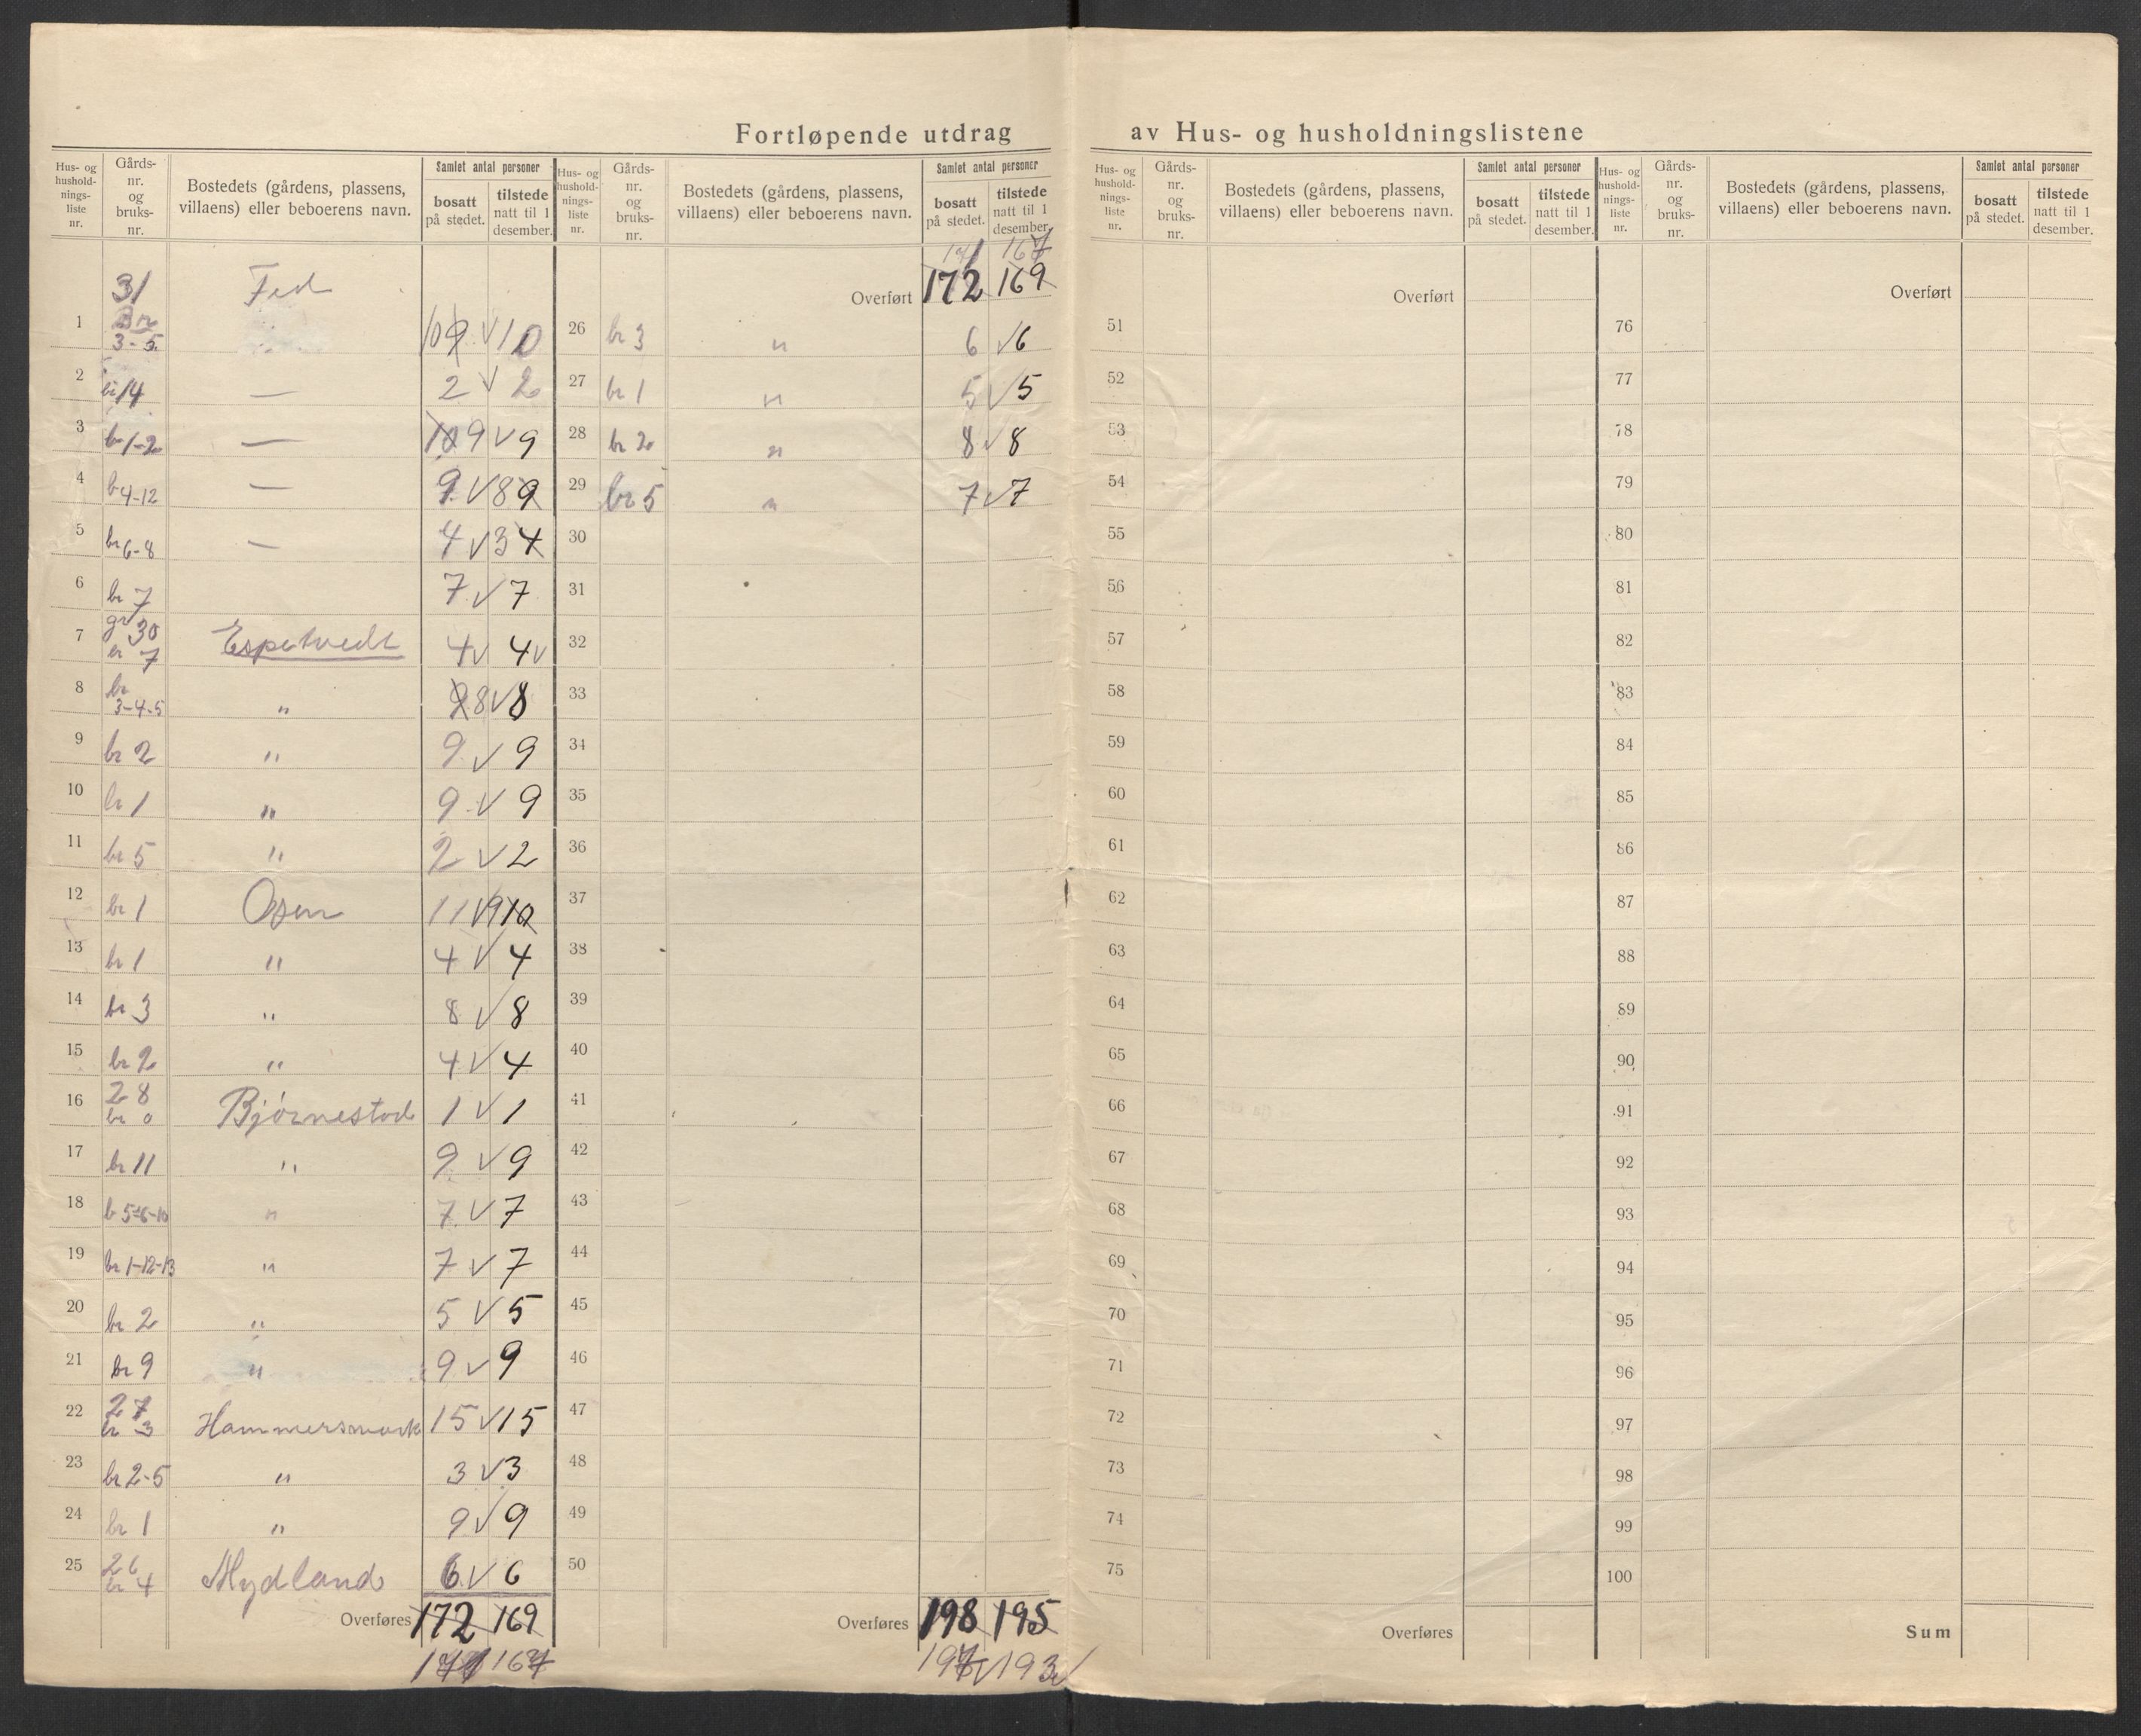 Fortløpende utdrag av Hus- og husholdningslistene
Hus- og husholdnings-liste nr. | Gårds-nr. og bruks-nr. | Bostedets (gårdens, plassens, villaens) eller beboerens navn. | Samlet antal personer bosatt på stedet. | tilstede natt til 1 desember.
31 Fed
1 Br 3-5 10 9 √ 10
2 br 14 — 2 √ 2
3 br 1-2 — 10 9 √ 9
4 b 4-12 — 9 √ 8 9
5 br 6-8 — 4 √ 3 4
6 br 7 7 √ 7
7 gr 30 br 7 Espetvedt 4 √ 4 √
8 br 3-4-5 " 9 8 √ 8
9 br 2 " 9 √ 9
10 br 1 " 9 √ 9
11 br 5 " 2 √ 2
12 br 1 Osen 11 √ 9 10
13 br 1 " 4 √ 4
14 br 3 " 8 √ 8
15 br 2 " 4 √ 4
16 28 br 0 Bjørnestad 1 √ 1
17 br 11 " 9 √ 9
18 b 5-6-10 " 7 √ 7
19 br 1-12-13 " 7 √ 7
20 br 2 " 5 √ 5
21 br 9 " 9 √ 9
22 27 br 3 Hammersmark 15 √ 15
23 br 2-5 " 3 √ 3
24 br 1 " 9 √ 9
25 26 br 4 Mydland 6 √ 6
Overføres 172 169
171 167
Hus- og husholdnings-liste nr. | Gårds-nr. og bruks-nr. | Bostedets (gårdens, plassens, villaens) eller beboerens navn. | Samlet antal personer bosatt på stedet. | tilstede natt til 1 desember.
171 167
Overført 172 169
26 br 3 " 6 √ 6
27 br 1 " 5 √ 5
28 br 2 " 8 √ 8
29 br 5 " 7 √ 7
30
31
32
33
34
35
36
37
38
39
40
41
42
43
44
45
46
47
48
49
50
Overføres 198 195
197 √ 193 √
Hus- og husholdnings-liste nr. | Gårds-nr. og bruks-nr. | Bostedets (gårdens, plassens, villaens) eller beboerens navn. | Samlet antal personer bosatt på stedet. | tilstede natt til 1 desember.
Overført
51
52
53
54
55
56
57
58
59
60
61
62
63
64
65
66
67
68
69
70
71
72
73
74
75
Overføres
Hus- og husholdnings-liste nr. | Gårds-nr. og bruks-nr. | Bostedets (gårdens, plassens, villaens) eller beboerens navn. | Samlet antal personer bosatt på stedet. | tilstede natt til 1 desember.
Overført
76
77
78
79
80
81
82
83
84
85
86
87
88
89
90
91
92
93
94
95
96
97
98
99
100
Sum